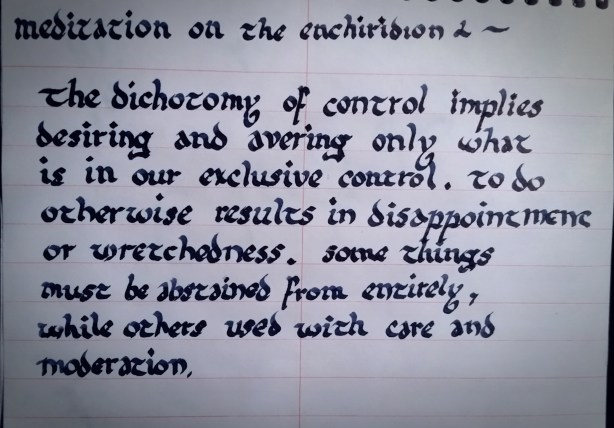 meditation on the enchiridion 2 ~
the dichotomy of control implies
desiring and avering only what
is in our exclusive control. to do
otherwise results in disappointment
or wretchedness. some things
must be abstained from entirely,
while others used with care and
moderation.